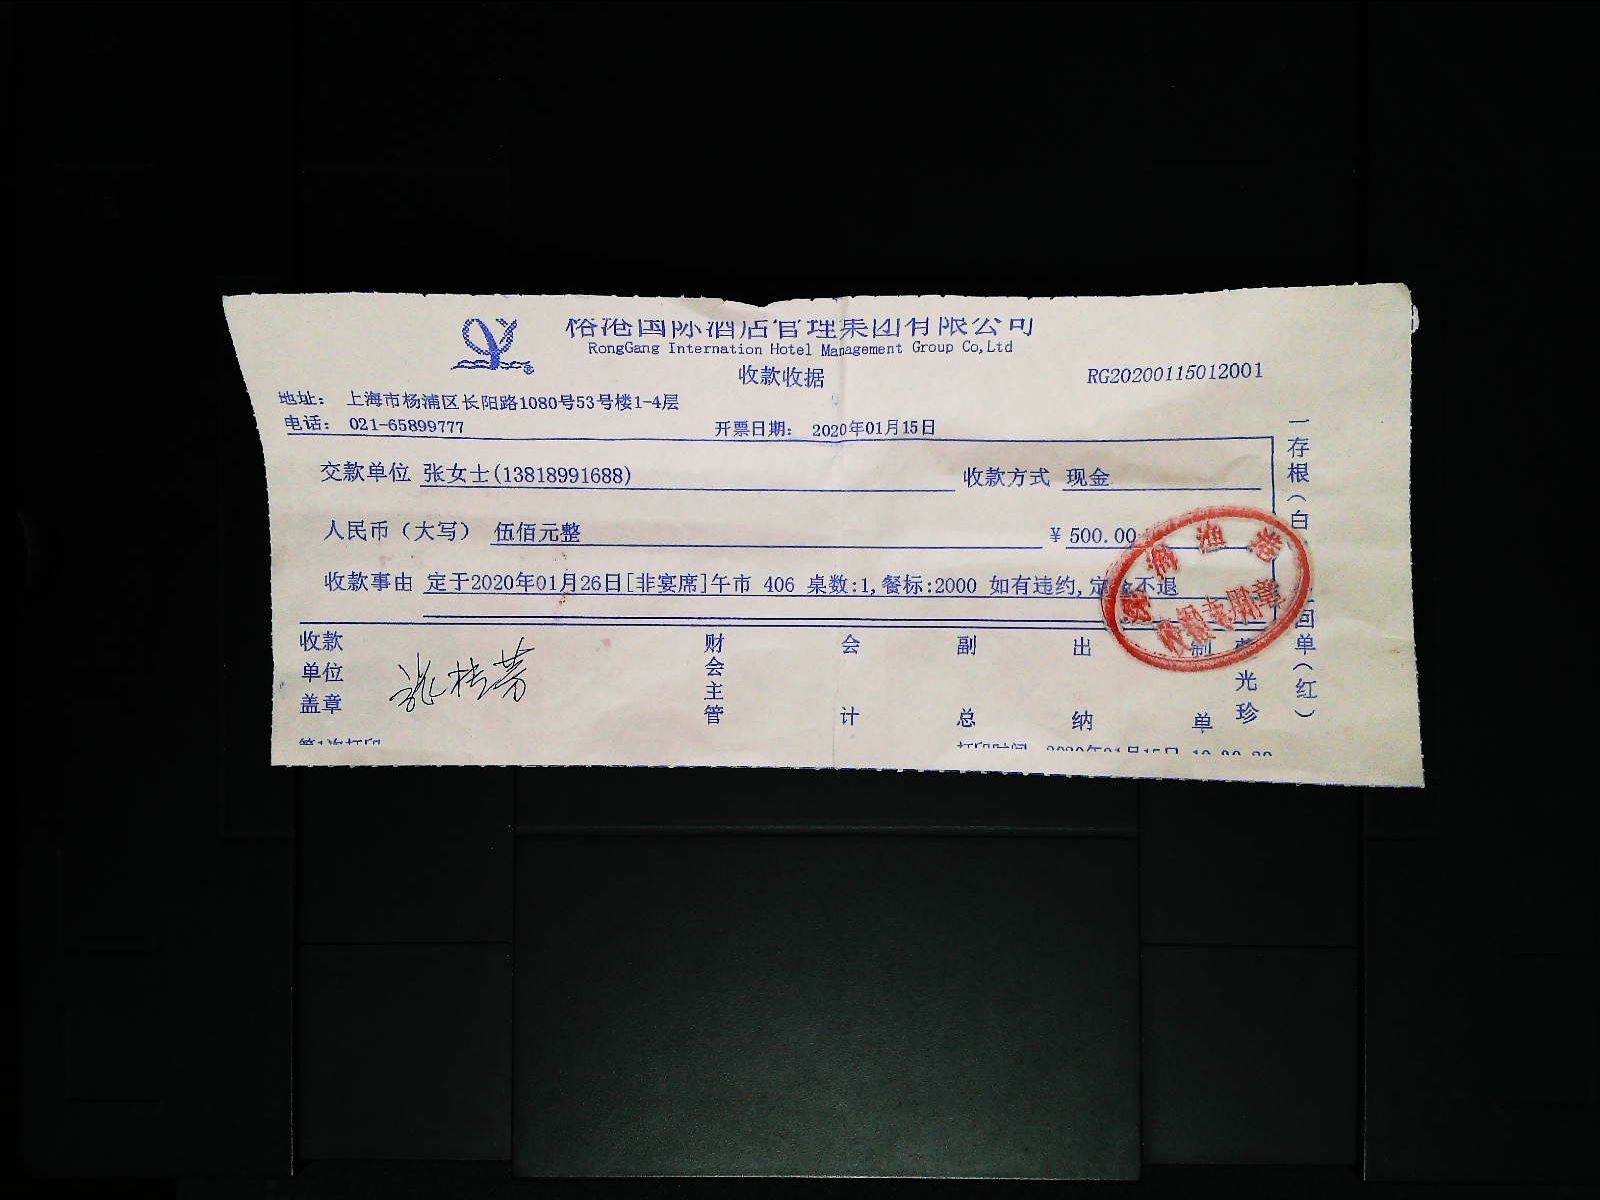 榕港国际酒店管理集团有限公司
RongGang Internation Hotel Management Group Co,Ltd
收款收据
RG20200115012001
地址： 上海市杨浦区长阳路1080号53号楼1-4层
电话： 021-65899777
开票日期： 2020年01月15日
交款单位 张女士(13818991688)
收款方式 现金
人民币（大写） 伍佰元整
¥ 500.00
收款事由 定于2020年01月26日[非宴席]午市 406 桌数:1,餐标:2000 如有违约,定 不退
收款单位盖章
财会主管
会计
副总
出纳
制单
光珍
一存根（白
回单（红）
渔港
收据专用章
第1次打印
打印时间 2020年01月15日